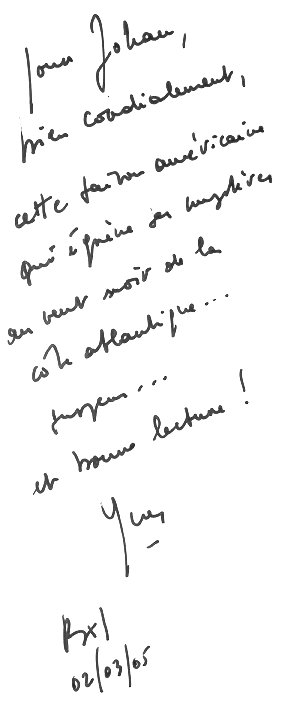 pour Johan,
bien cordialement,
cette saison américaine
qui égrène ses mystères
au vent noir de la
côte atlantique...
suspens...
et bonne lecture !
Yves
Bxl
02/03/05